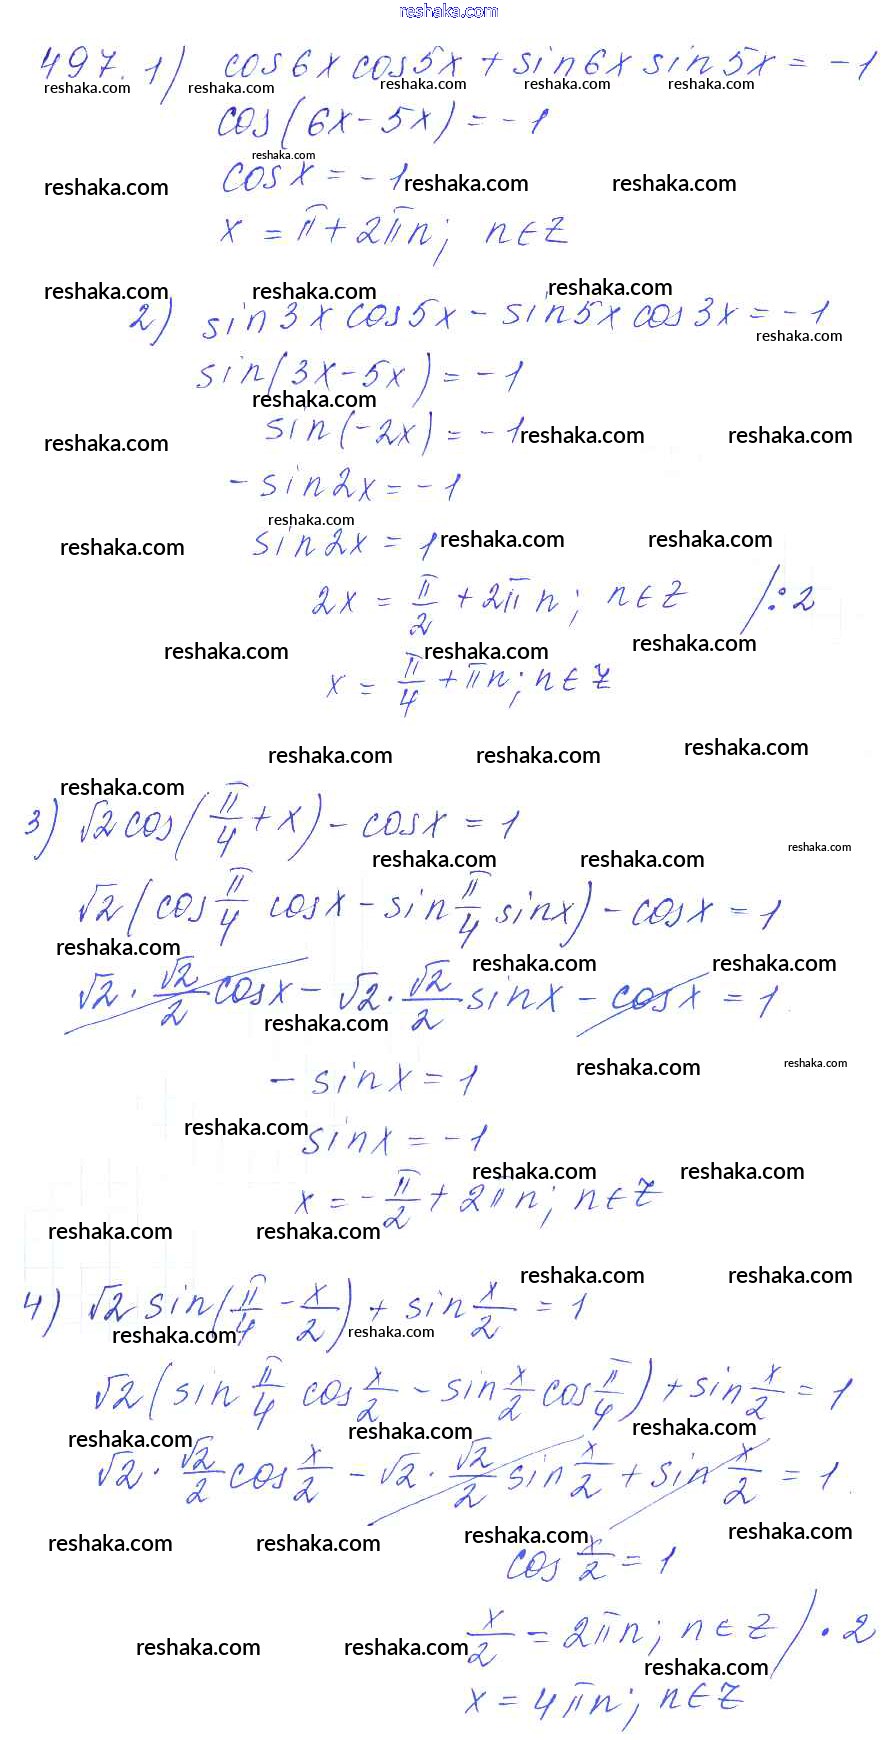 reshaka.com
497. 1) cos6x cos5x + sin6x sin5x = -1
reshaka.com reshaka.com reshaka.com reshaka.com reshaka.com
cos(6x - 5x) = -1
reshaka.com
cosx = -1
reshaka.com reshaka.com reshaka.com
x = π + 2πn; n∈Z
reshaka.com reshaka.com reshaka.com
2) sin3x cos5x - sin5x cos3x = -1
reshaka.com
sin(3x - 5x) = -1
reshaka.com
sin(-2x) = -1
reshaka.com reshaka.com reshaka.com
-sin2x = -1
reshaka.com
sin2x = 1
reshaka.com reshaka.com reshaka.com
2x = π/2 + 2πn; n∈Z /:2
reshaka.com reshaka.com reshaka.com
x = π/4 + πn; n∈Z
reshaka.com reshaka.com reshaka.com
reshaka.com
3) √2 cos(π/4 + x) - cosx = 1
reshaka.com reshaka.com reshaka.com
√2(cos π/4 cosx - sin π/4 sinx) - cosx = 1
reshaka.com reshaka.com reshaka.com
√2 · √2/2 cosx - √2 · √2/2 sinx - cosx = 1
reshaka.com
-sinx = 1
reshaka.com reshaka.com
reshaka.com
sinx = -1
reshaka.com reshaka.com
x = -π/2 + 2πn; n∈Z
reshaka.com reshaka.com
reshaka.com reshaka.com
4) √2 sin(π/4 - x/2) + sin x/2 = 1
reshaka.com reshaka.com
√2(sin π/4 cos x/2 - sin x/2 cos π/4) + sin x/2 = 1
reshaka.com reshaka.com reshaka.com
√2 · √2/2 cos x/2 - √2 · √2/2 sin x/2 + sin x/2 = 1
reshaka.com reshaka.com reshaka.com reshaka.com
cos x/2 = 1
x/2 = 2πn; n∈Z /·2
reshaka.com reshaka.com reshaka.com
x = 4πn; n∈Z